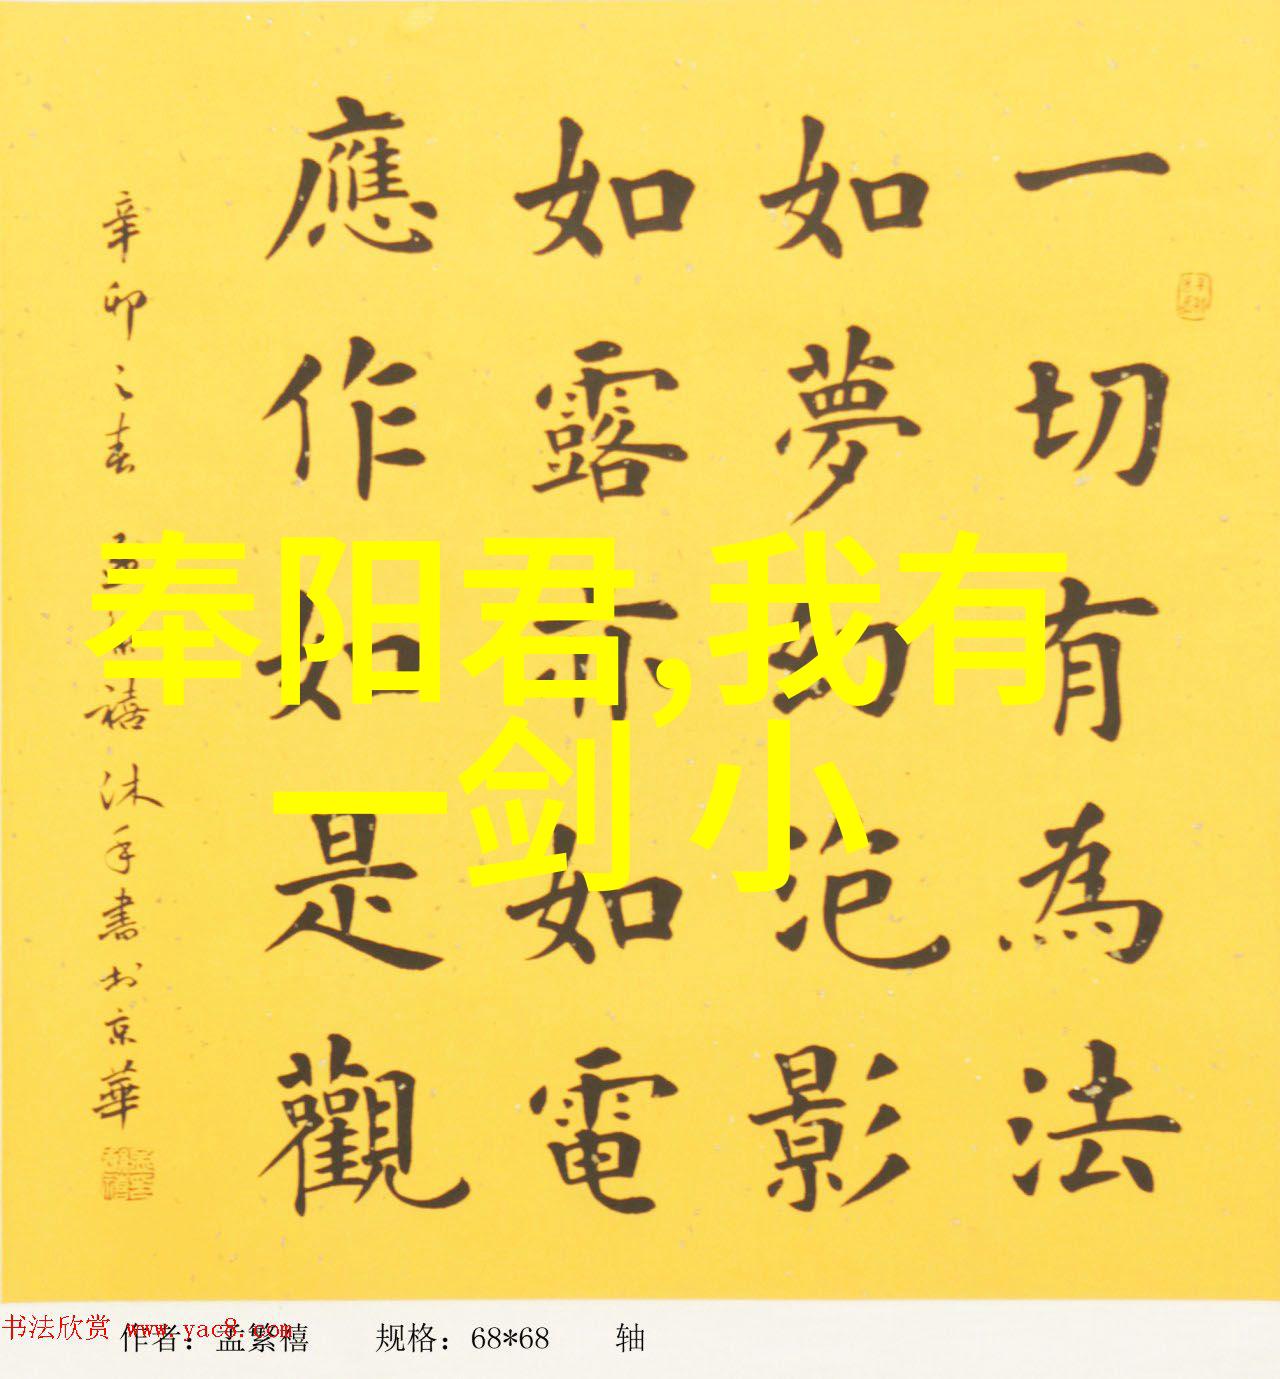 一切有為法
如夢幻泡影
如露亦如電
應作如是觀
辛卯之春 孟繁禧沐手書於京華
奉阳君,我有
一剑 小
书法欣赏 www.yac8.com
作者：孟繁禧 规格：68*68 轴